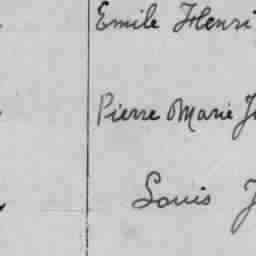 Emile Henri
Pierre Marie
Louis